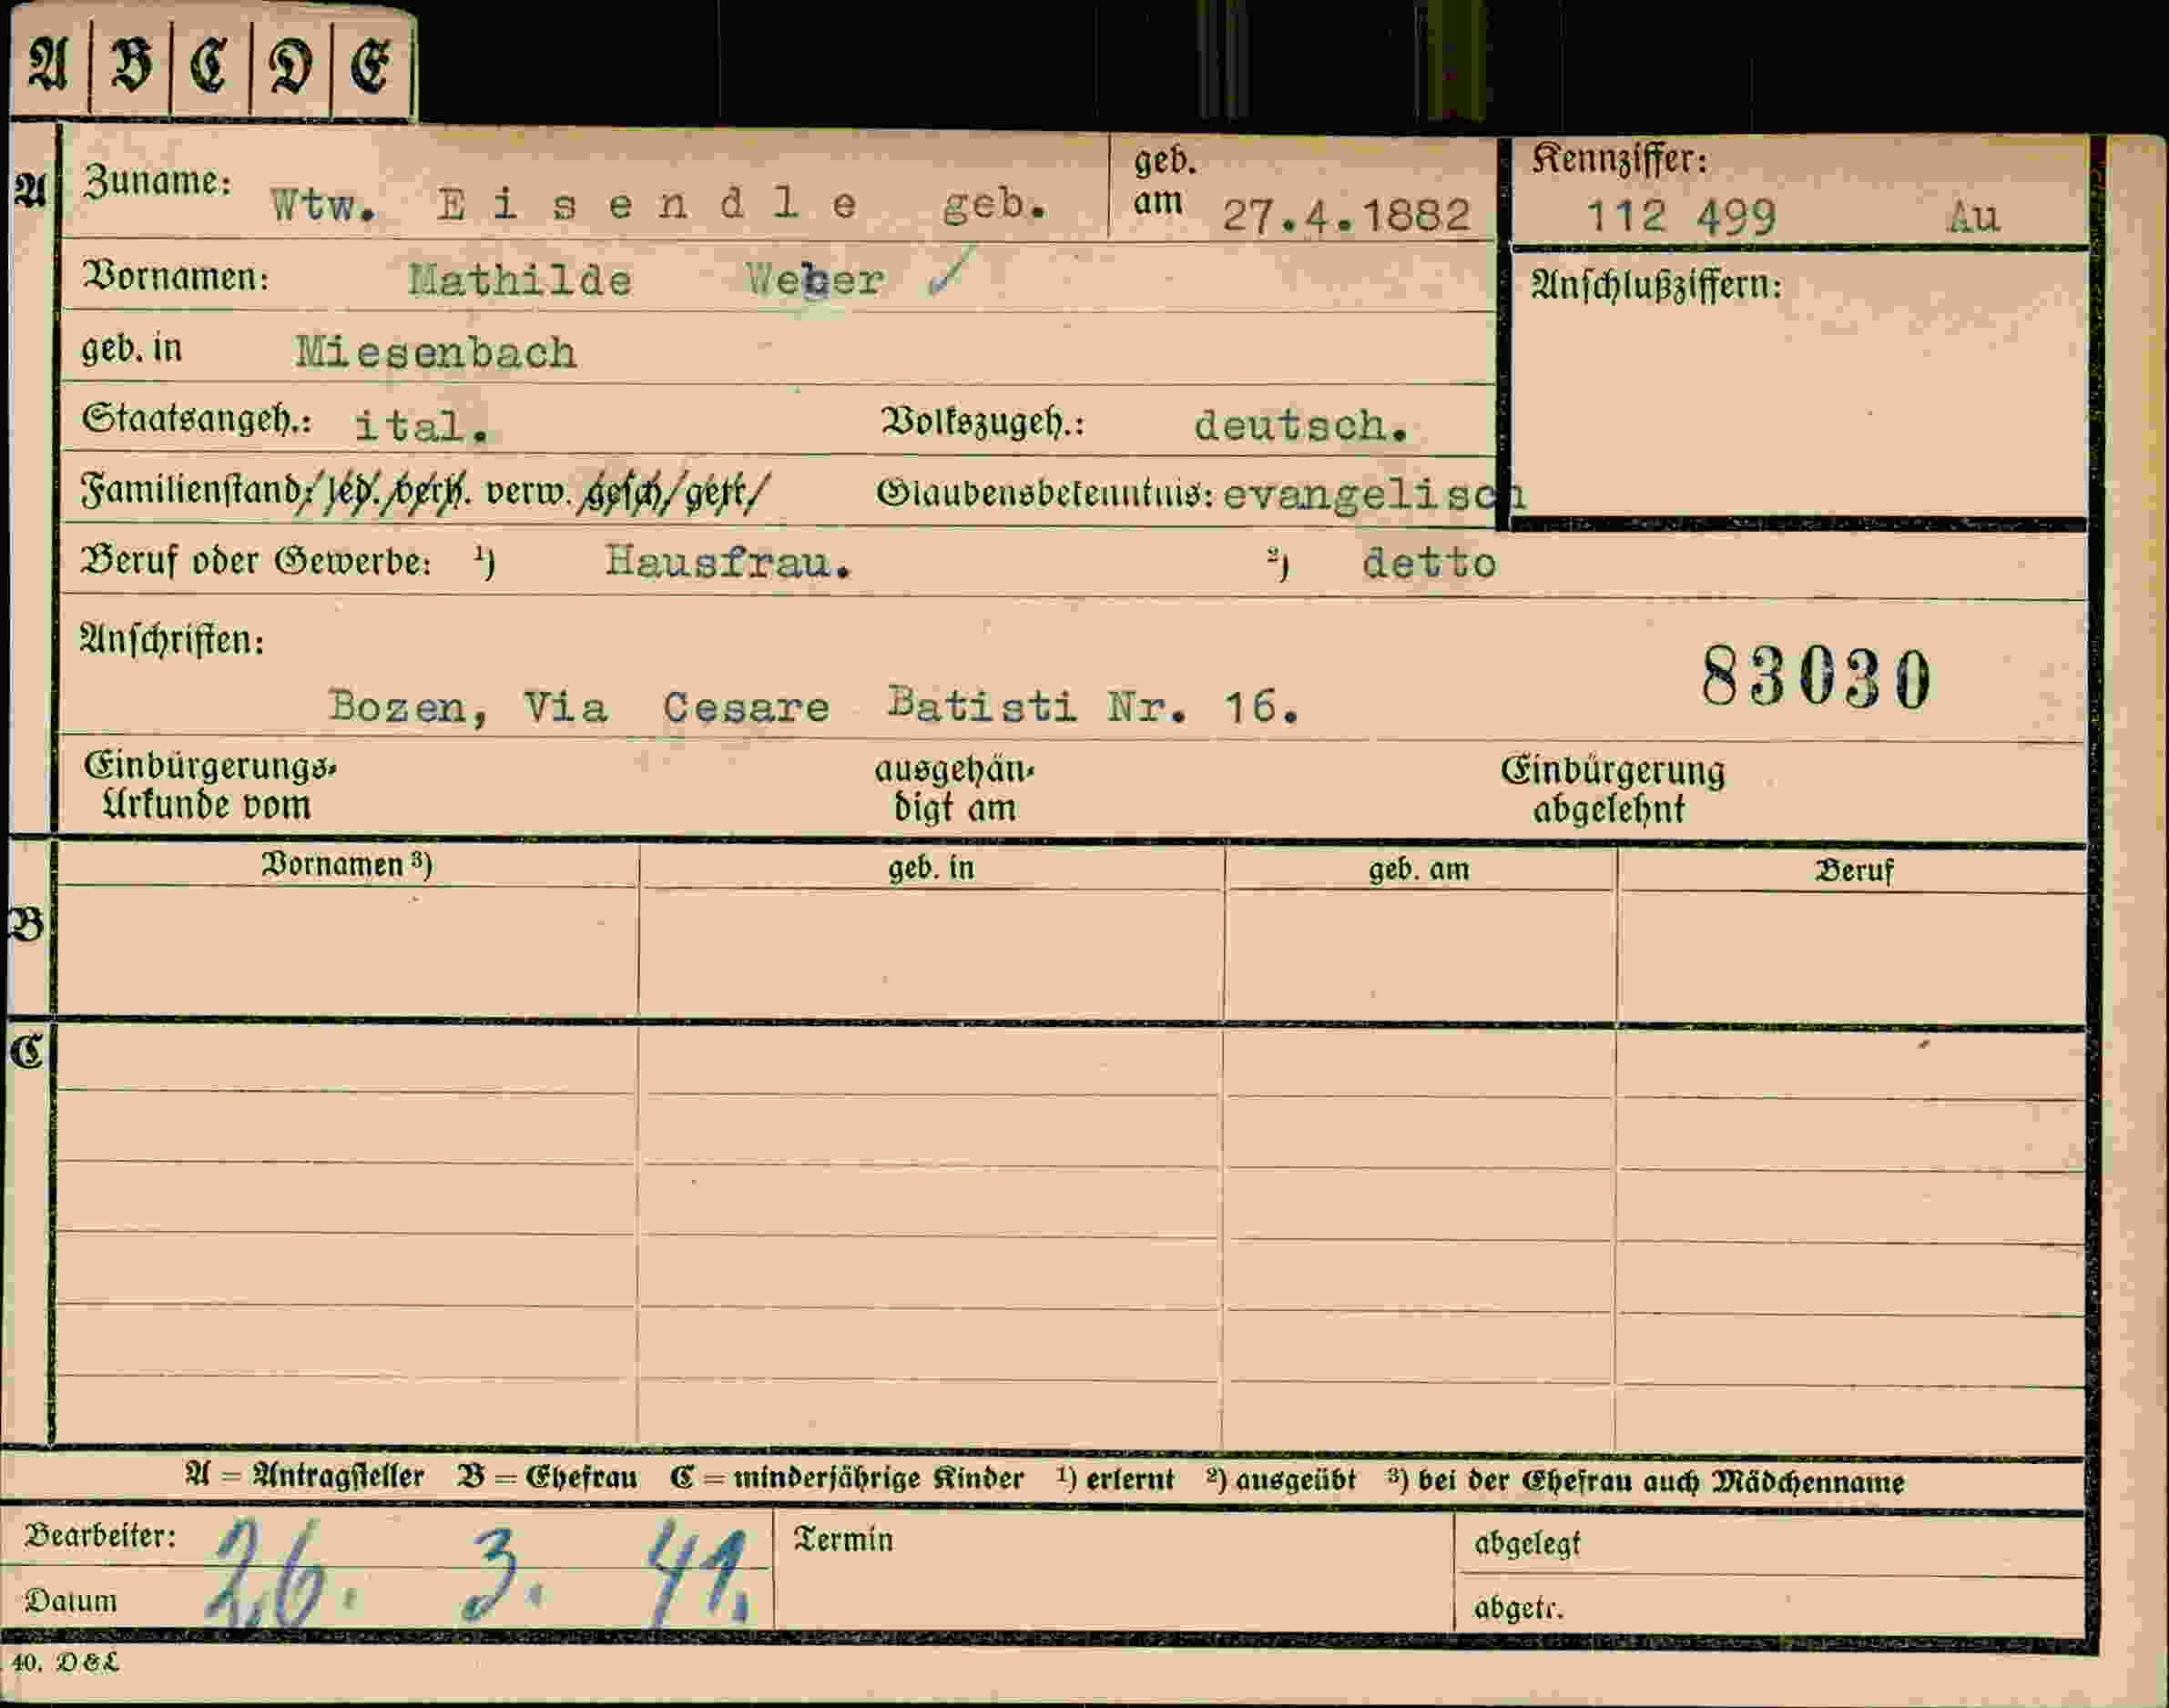 A B C D E
A Zuname: Wtw. Eisendle geb. geb. am 27.4.1882 Kennziffer: 112 499 Au
Vornamen: Mathilde Weber ✓ Anschlußziffern:
geb. in Miesenbach
Staatsangeh.: ital. Volkszugeh.: deutsch.
Familienstand: led. verh. verw. gesch. getr. Glaubensbekenntnis: evangelisch
Beruf oder Gewerbe: ¹) Hausfrau. ²) detto
Anschriften:
83030
Bozen, Via Cesare Batisti Nr. 16.
Einbürgerungs- ausgehän- Einbürgerung
Urkunde vom digt am abgelehnt
Vornamen ³) geb. in geb. am Beruf
B
C
A = Antragsteller B = Ehefrau C = minderjährige Kinder ¹) erlernt ²) ausgeübt ³) bei der Ehefrau auch Mädchenname
Bearbeiter: Termin abgelegt
Datum 26. 3. 41. abgetr.
40. D&L